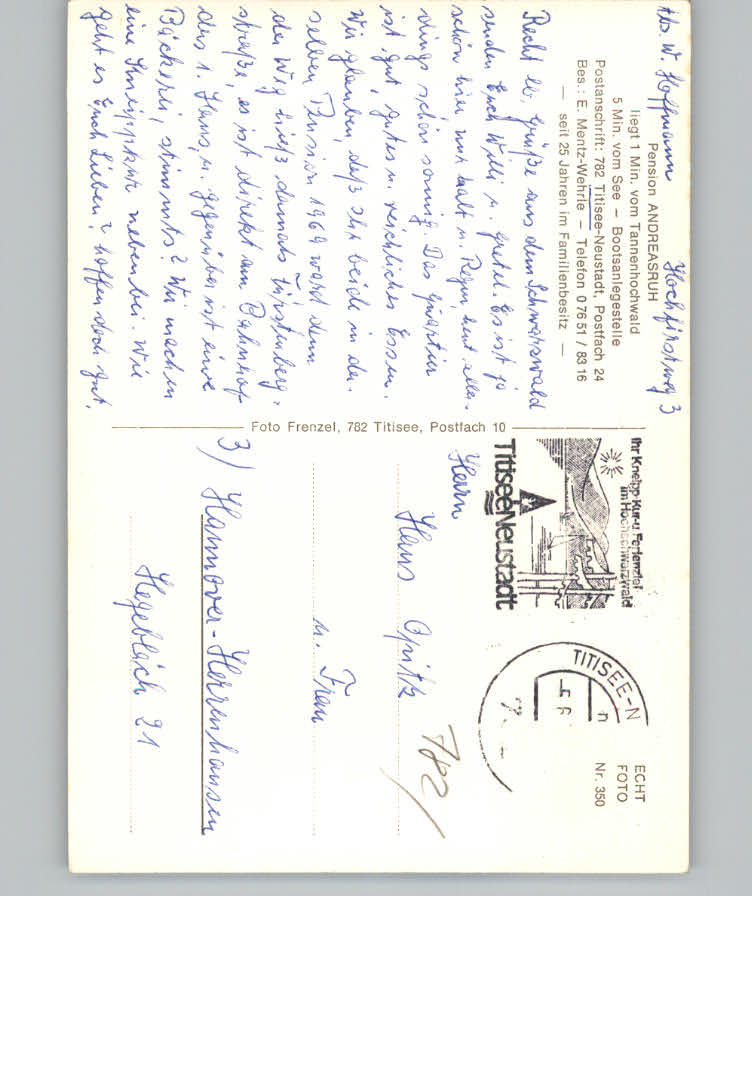 Abs. W. Hoffmann Hochfirstweg 3
Pension ANDREASRUH
liegt 1 Min. vom Tannenhochwald
5 Min. vom See – Bootsanlegestelle
Postanschrift: 782 Titisee-Neustadt, Postfach 24
Bes.: E. Mentz-Wehrle – Telefon 0 76 51 / 83 16
— seit 25 Jahren im Familienbesitz —
Recht lb. Grüße aus dem Schwarzwald
senden Euch Willi u. Gretel. Es ist ja
schön hier nur kalt u. Regen, heut aller-
dings schön sonnig. Das Quartier
ist gut, gutes u. reichliches Essen.
Wir glauben, daß Ihr beide in der-
selben Pension 1969 ward denn
der Weg hieß damals Fürstenberg-
straße, es ist direkt am Bahnhof
das 1. Haus, u. gegenüber ist eine
Bäckerei, stimmts? Wir machen
eine Kneippkur nebenbei. Wie
geht es Euch Lieben? hoffen doch gut.
Foto Frenzel, 782 Titisee, Postfach 10
Ihr Kneipp-Kur-u. Ferienziel
im Hochschwarzwald
TitiseeNeustadt
TITISEE-N
ECHT
FOTO
Nr. 350
Herrn
Hans Opitz
u. Frau
782
3) Hannover-Herrenhausen
Hegebläch 21